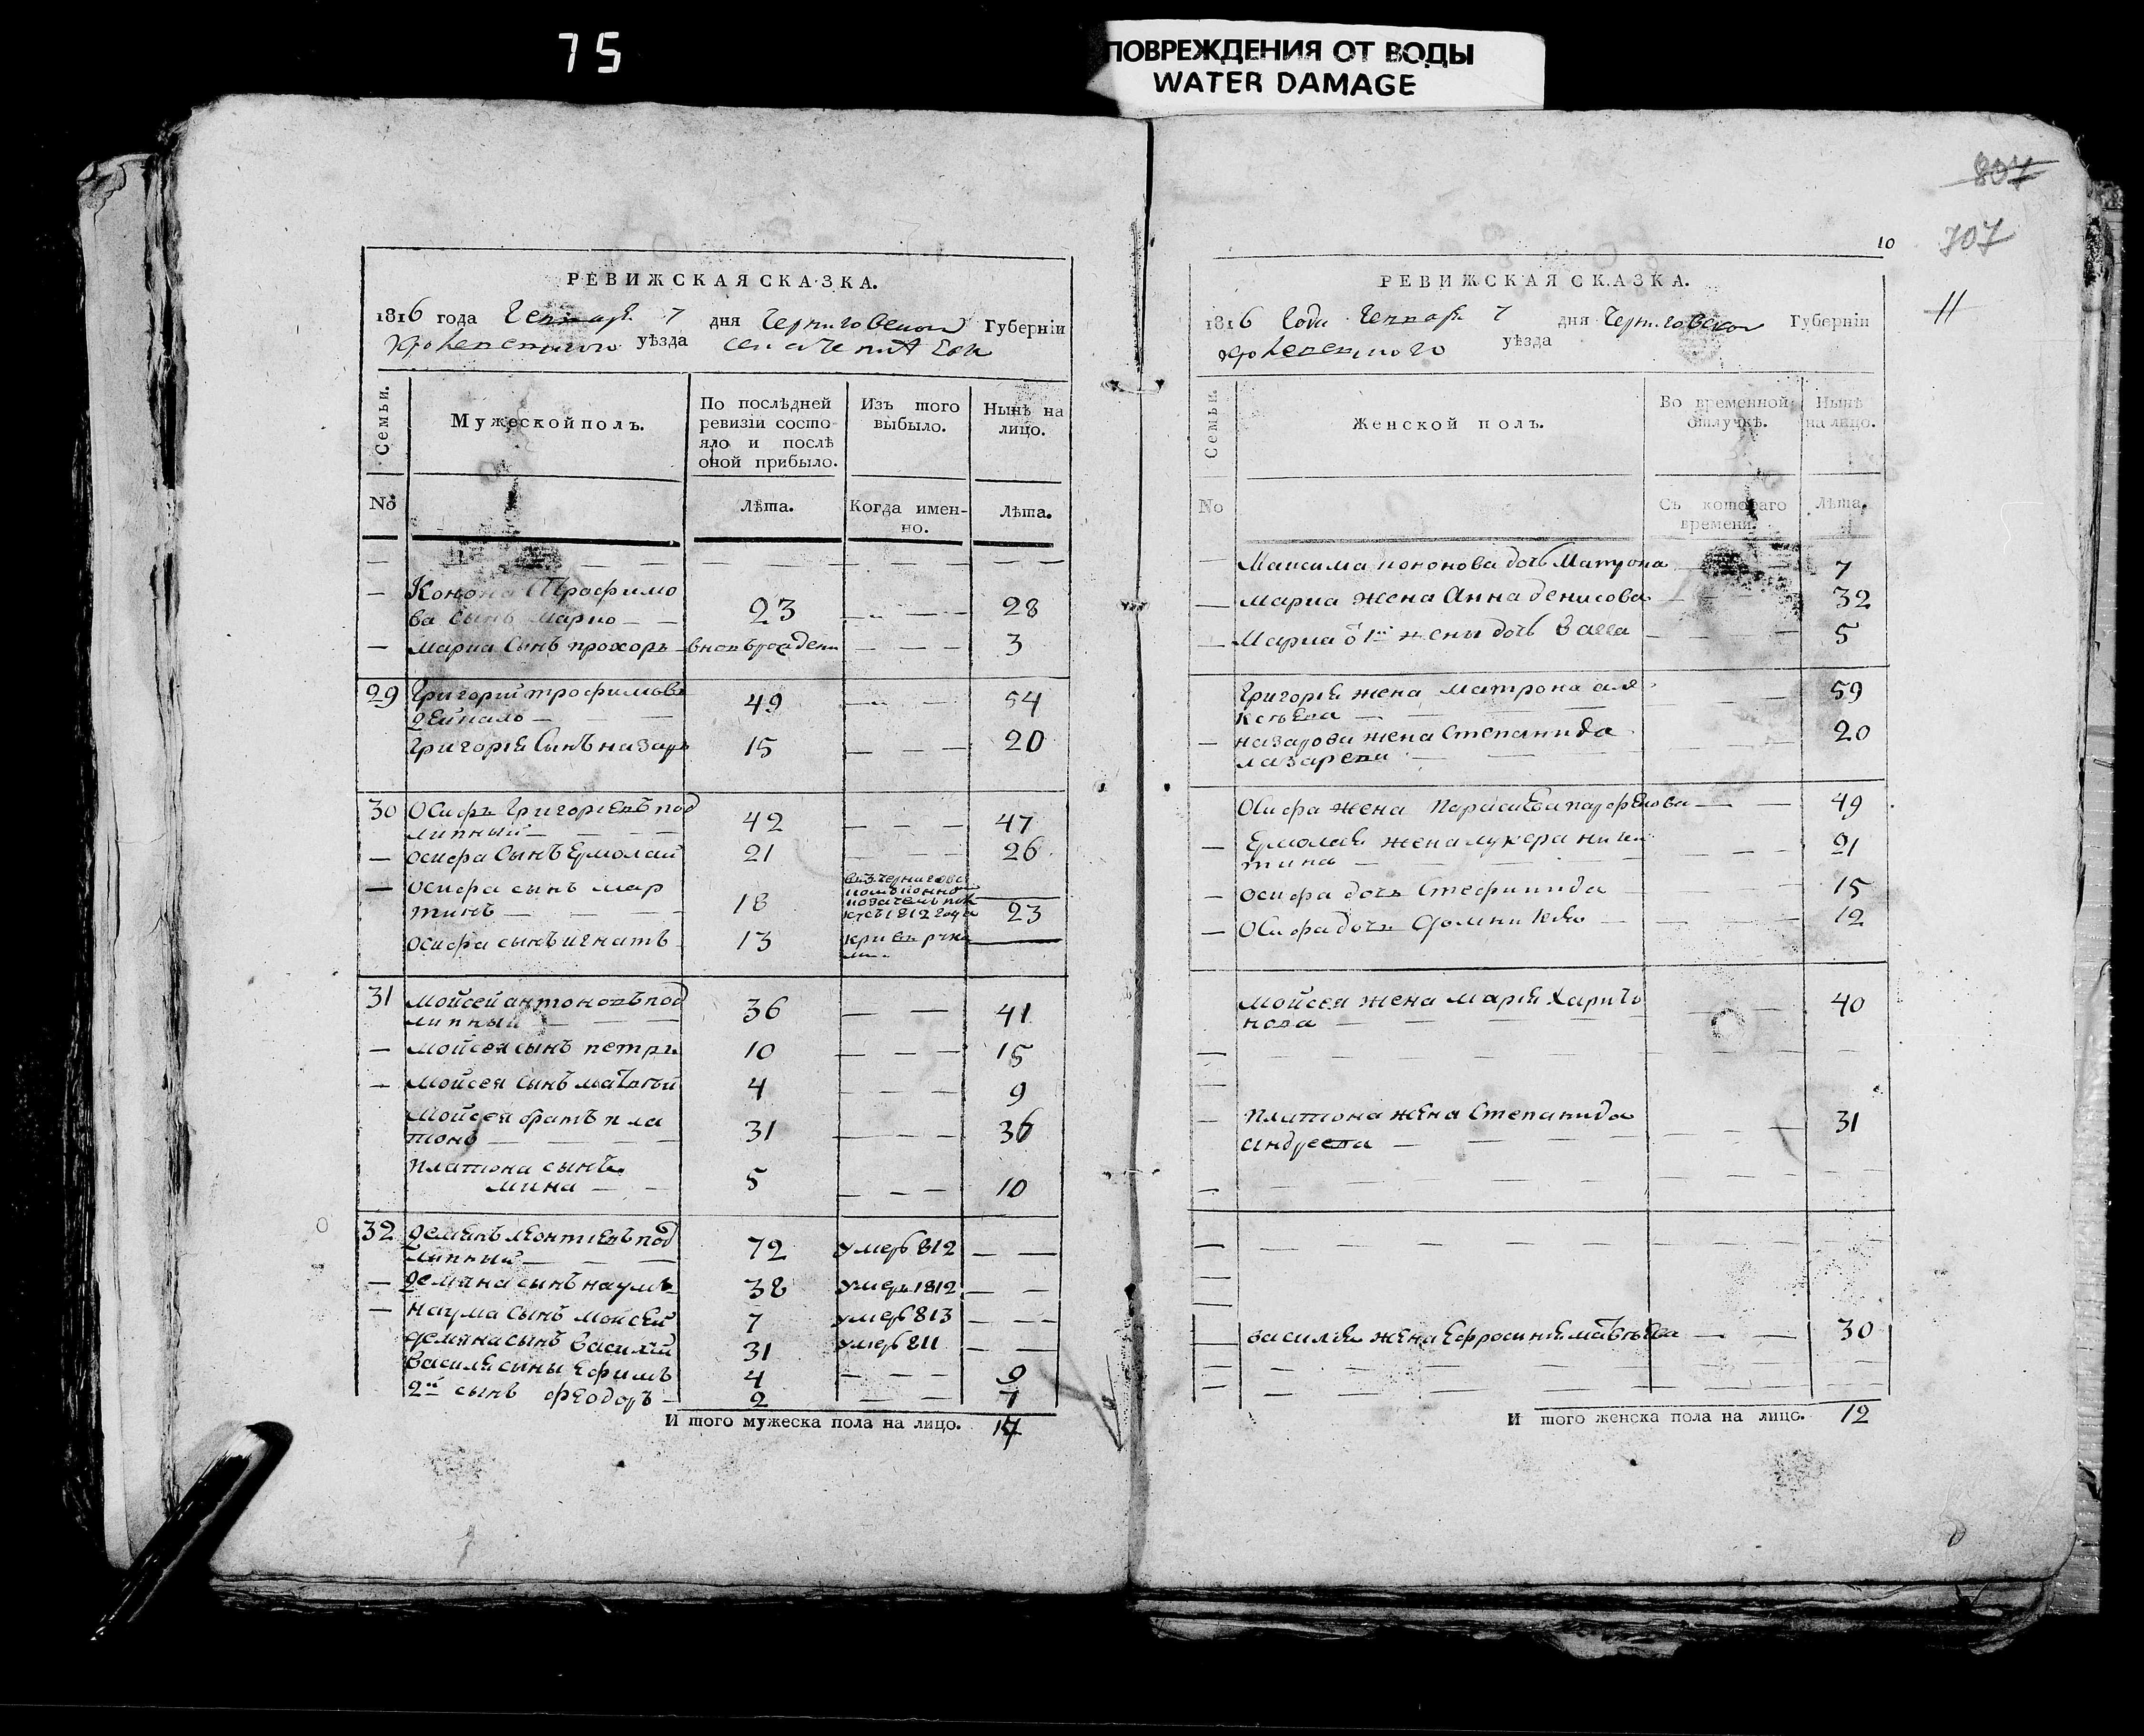 75
ПОВРЕЖДЕНИЯ ОТ ВОДЫ
WATER DAMAGE
807
707
11
РЕВИЖСКАЯ СКАЗКА.
1816 года Генваря 7 дня Черниговской Губерніи
уѣзда
Семьи.
Мужеской полъ.
По послѣдней
ревизіи состо-
яло и послѣ
оной прибыло.
Изъ того
выбыло.
Нынѣ на
лицо.
No
Лѣта.
Когда имен-
но.
Лѣта.
Конона Трофимо
ва сынъ Марко 23 28
Марка сынъ прохоръ вновьрожденъ 3
29 Григорій трофимовъ 49 54
Григорія сынъ назаръ 15 20
30 Осифъ Григоріевъ под
липный 42 47
осифа сынъ Ермолай 21 26
осифа сынъ мар
тинъ 18 1812 года 23
осифа сынъ игнатъ 13
31 мойсей антоновъ под
липный 36 41
мойсея сынъ петръ 10 15
мойсея сынъ матвѣй 4 9
мойсея братъ пла
тонъ 31 36
платона сынъ
мина 5 10
32 демянъ леонтіевъ под
липный 72 умеръ 812
демяна сынъ наумъ 38 умеръ 1812
наума сынъ мойсей 7 умеръ 813
демяна сынъ василій 31 умеръ 811
василя сыны Ефимъ 4 9
2й сынъ феодоръ 2 7
И того мужеска пола на лицо. 17
10
РЕВИЖСКАЯ СКАЗКА.
1816 Года Генваря 7 дня Черниговской Губерніи
уѣзда
Семьи.
Женской полъ.
Во временной
отлучкѣ.
Нынѣ
на лицо.
No
Съ котораго
времени.
Лѣта.
Максима кононова дочь Матрона 7
Марка жена Анна денисова 32
Марка о 1й жены дочь Васса 5
Григорія жена матрона але
ксѣева 59
назарова жена Степанида
лазарева 20
Осифа жена Параскевия парфенова 49
Ермолая жена лукера ники
тина 21
осифа дочь Стефанида 15
Осифа дочь Домникія 12
мойсея жена марія Харито
нова 40
платона жена Степанида
андреева 31
василія жена Ефросинія матвѣева 30
И того женска пола на лицо. 12